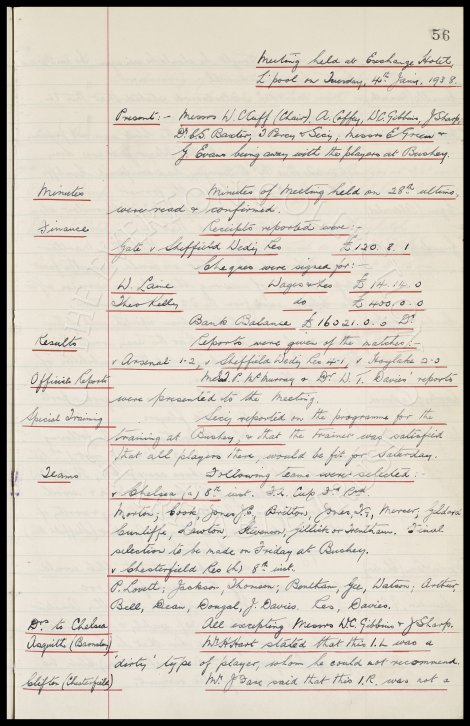 56
Meeting held at Exchange Hotel,
L'pool on Tuesday, 4th Jany. 1938.
Present :- Messrs W. Cuff (Chair), A. Coffey, W.C. Gibbins, J. Sharp,
Dr. C.S. Baxter, T. Percy & Secy, Messrs E. Green &
G. Evans being away with the players at Bushey.
Minutes Minutes of Meeting held on 28th ultimo,
were read & confirmed.
Finance Receipts reported were :-
Gate v Sheffield Wedy Res £120. 8. 1
Cheques were signed for :-
W. Lane Wages &c £ 14. 14. 0
Theo Kelly do £ 400. 0. 0
Bank Balance £16021. 0. 0 Dr.
Results Reports were given of the matches :-
v Arsenal 1-2, v Sheffield Wedy Res 4-1, v Hoylake 2-0
Officials Reports Mr. J.P. McMurray & Dr. W.T. Davies reports
were presented to the Meeting.
Special Training Secy reported on the programme for the
training at Bushey, & that the trainer was satisfied
that all players there, would be fit for Saturday.
Teams Following teams were selected :-
v Chelsea (a) 8th inst. F.A. Cup 3rd Rnd.
Morton; Cook, Jones J.E, Britton, Jones T.G, Mercer, Geldard
Cunliffe, Lawton, Stevenson, Gillick or Trentham. Final
selection to be made on Friday at Bushey.
v Chesterfield Res (h) 8th inst.
P. Lovett; Jackson, Thomson; Bentham, Gee, Watson; Arthur,
Bell, Dean, Dougal, J. Davies. Res, Davies.
Drs to Chelsea All excepting Messrs W.C. Gibbins & J. Sharp.
Asquith (Barnsley) Mr. H. Hart stated that this I.L was a
'dirty' type of player, whom he could not recommend.
Clifton (Chesterfield) Mr. J. said that this I.R. was not a